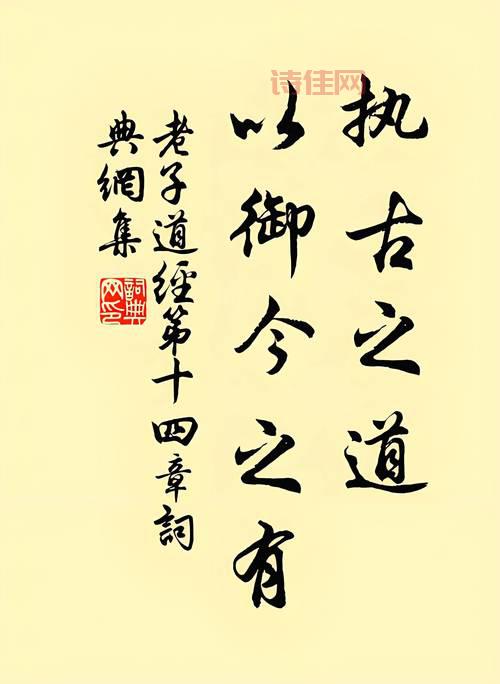 诗佳网
执古之道
以御今之有
老子道經第十四章詞
典網集
詞典
网印